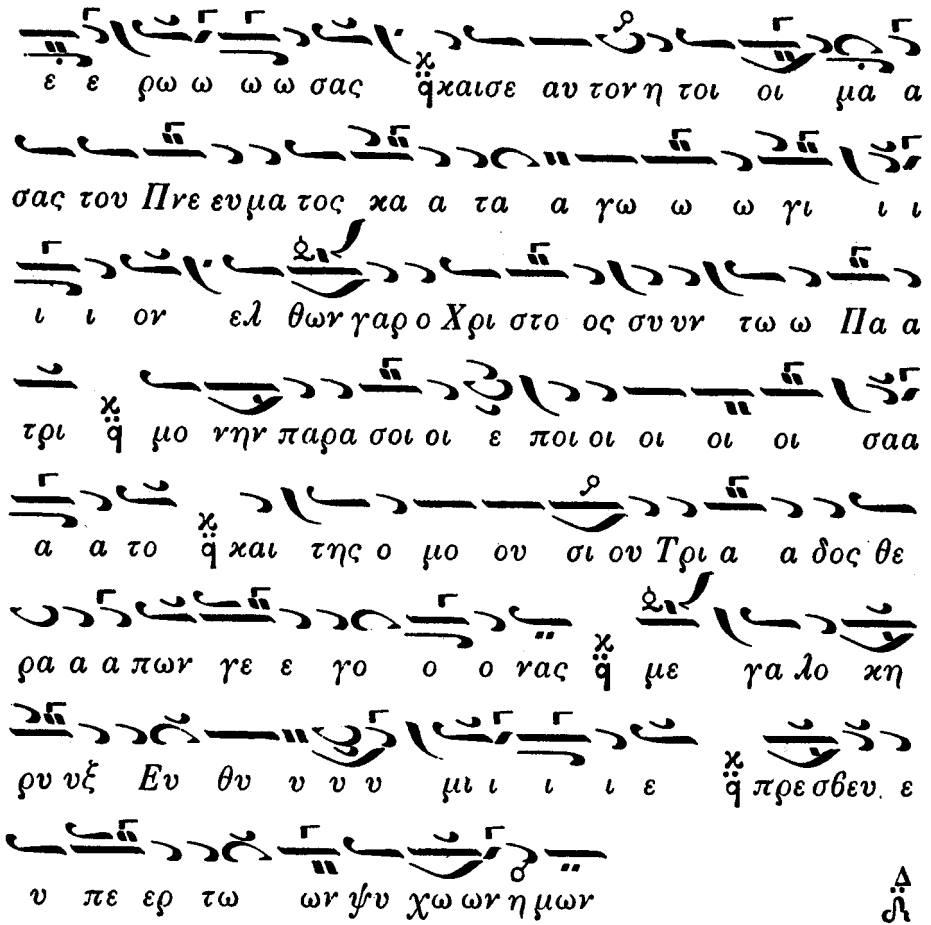 ε ε ρω ω ω ω σας ϗ q̈ και σε αυ τον η τοι οι μα α
σας του Πνε ευ μα τος κα α τα α γω ω ω γι ι ι
ι ι ον ελ θων γαρ ο Χρι στο ος συ υν τω ω Πα α
τρι ϗ q̈ μο νην παρα σοι οι ε ποι οι οι οι οι σα α
α α το ϗ q̈ και της ο μο ου σι ου Τρι α α δος θε
ρα α α πων γε ε γο ο ο νας ϗ q̈ με γα λο κη
ρυ υξ Ευ θυ υ υ υ μι ι ι ι ε ϗ q̈ πρε σβευ. ε
υ πε ερ τω ων ψυ χω ων η μων Δ